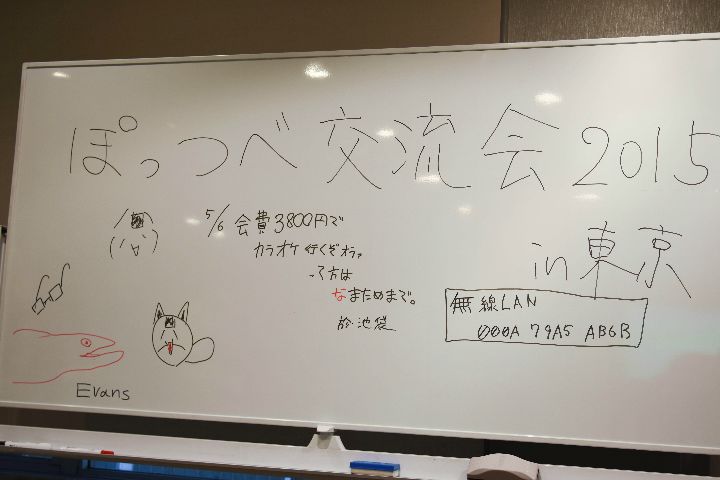 ぽっつべ交流会2015
in 東京
5/6 会費3800円で
カラオケ行くぞオラァ
って方は
なまためまで。
於 池袋
無線LAN
000A 79A5 AB6B
Evans